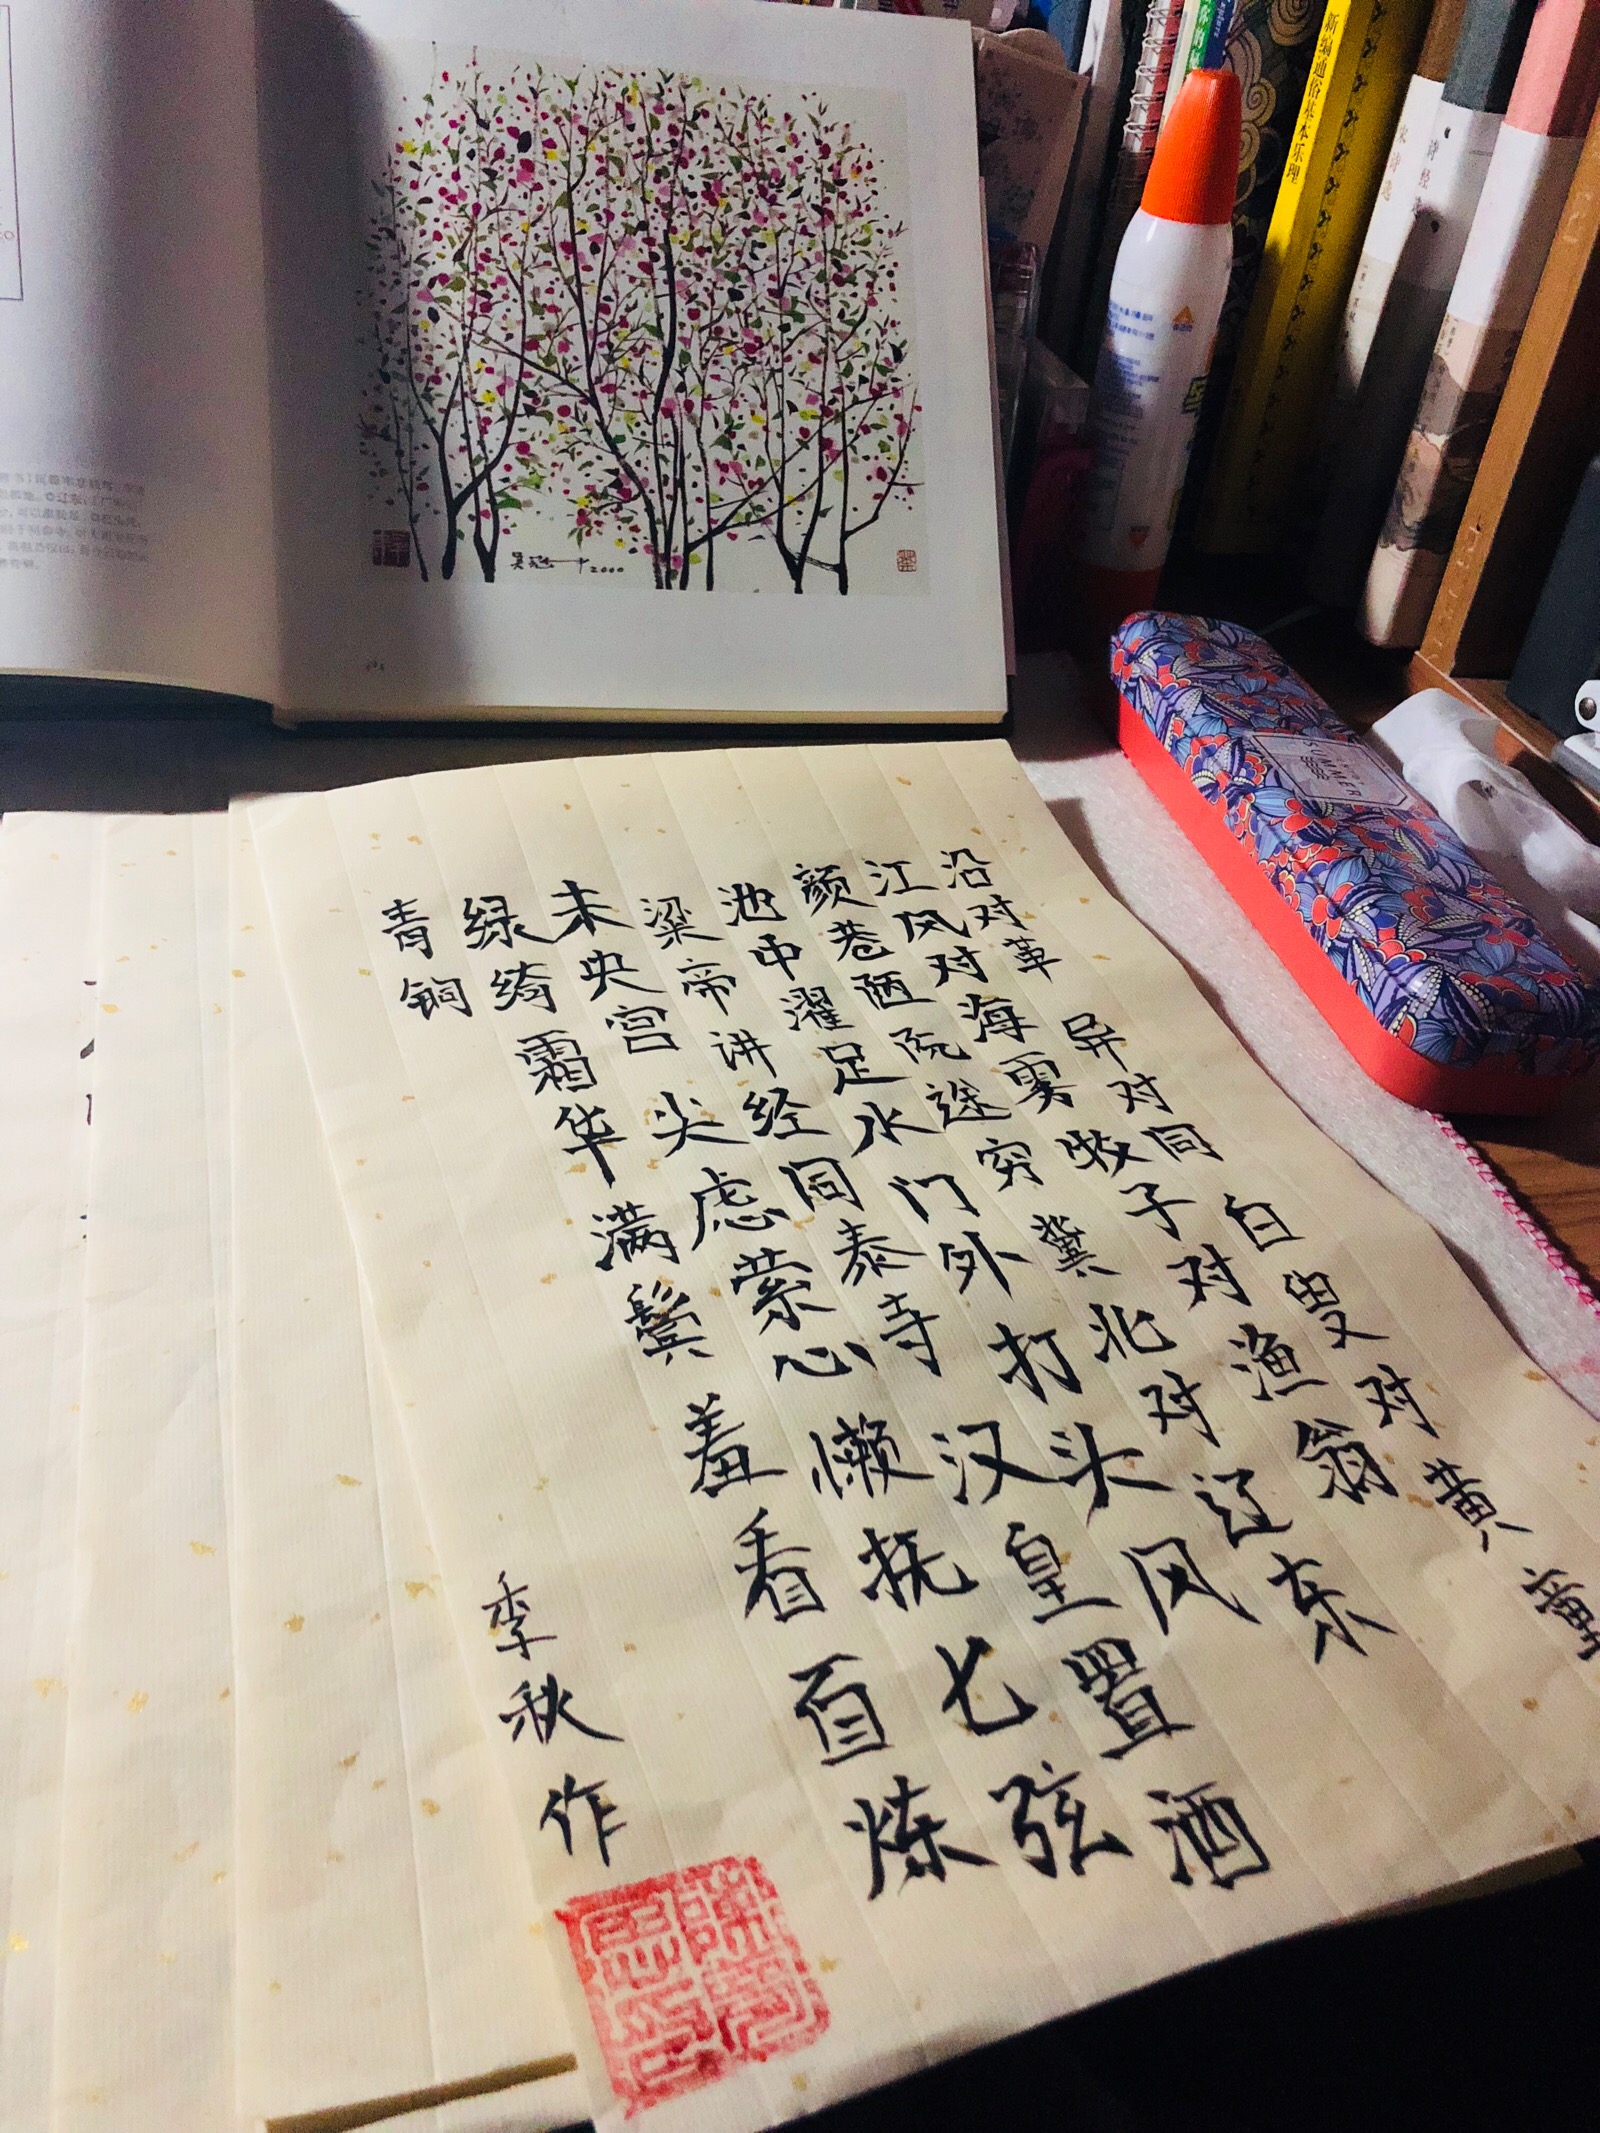 沿对革 异对同 白叟对黄童
江风对海雾 牧子对渔翁
颜巷陋 阮途穷 冀北对辽东
池中濯足水 门外打头风
梁帝讲经同泰寺 汉皇置酒
未央宫 尖虑萦心 懒抚七弦
绿绮 霜华满鬓 羞看百炼
青铜
季秋作
吴冠中 2000
新编通俗基本乐理
诗经
SUMMER